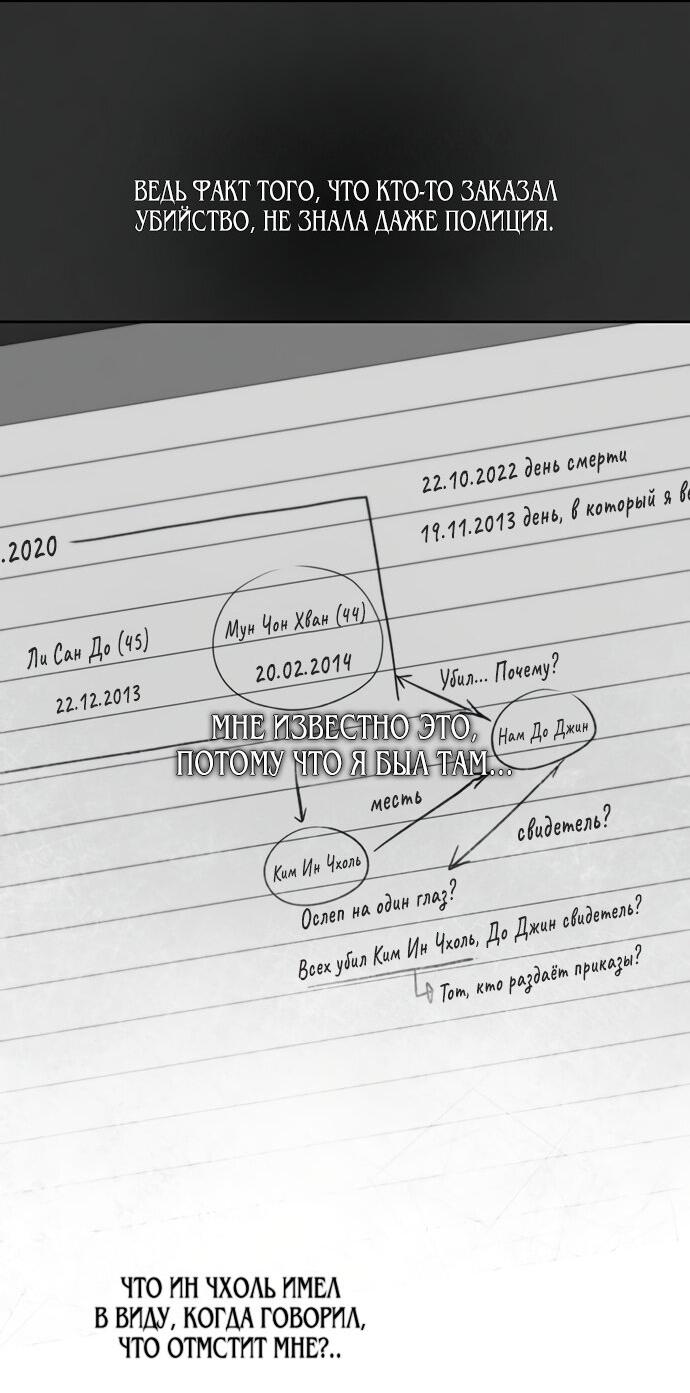 ВЕДЬ ФАКТ ТОГО, ЧТО КТО-ТО ЗАКАЗАЛ
УБИЙСТВО, НЕ ЗНАЛА ДАЖЕ ПОЛИЦИЯ.
22.10.2022 день смерти
19.11.2013 день, в который я ве
.2020
Ли Сан До (45)
22.12.2013
Мун Чон Хван (44)
20.02.2014
Убил... Почему?
МНЕ ИЗВЕСТНО ЭТО,
ПОТОМУ ЧТО Я БЫЛ ТАМ...
Нам До Джин
месть
свидетель?
Ким Ин Чхоль
Ослеп на один глаз?
Всех убил Ким Ин Чхоль, До Джин свидетель?
Тот, кто раздаёт приказы?
ЧТО ИН ЧХОЛЬ ИМЕЛ
В ВИДУ, КОГДА ГОВОРИЛ,
ЧТО ОТМСТИТ МНЕ?..